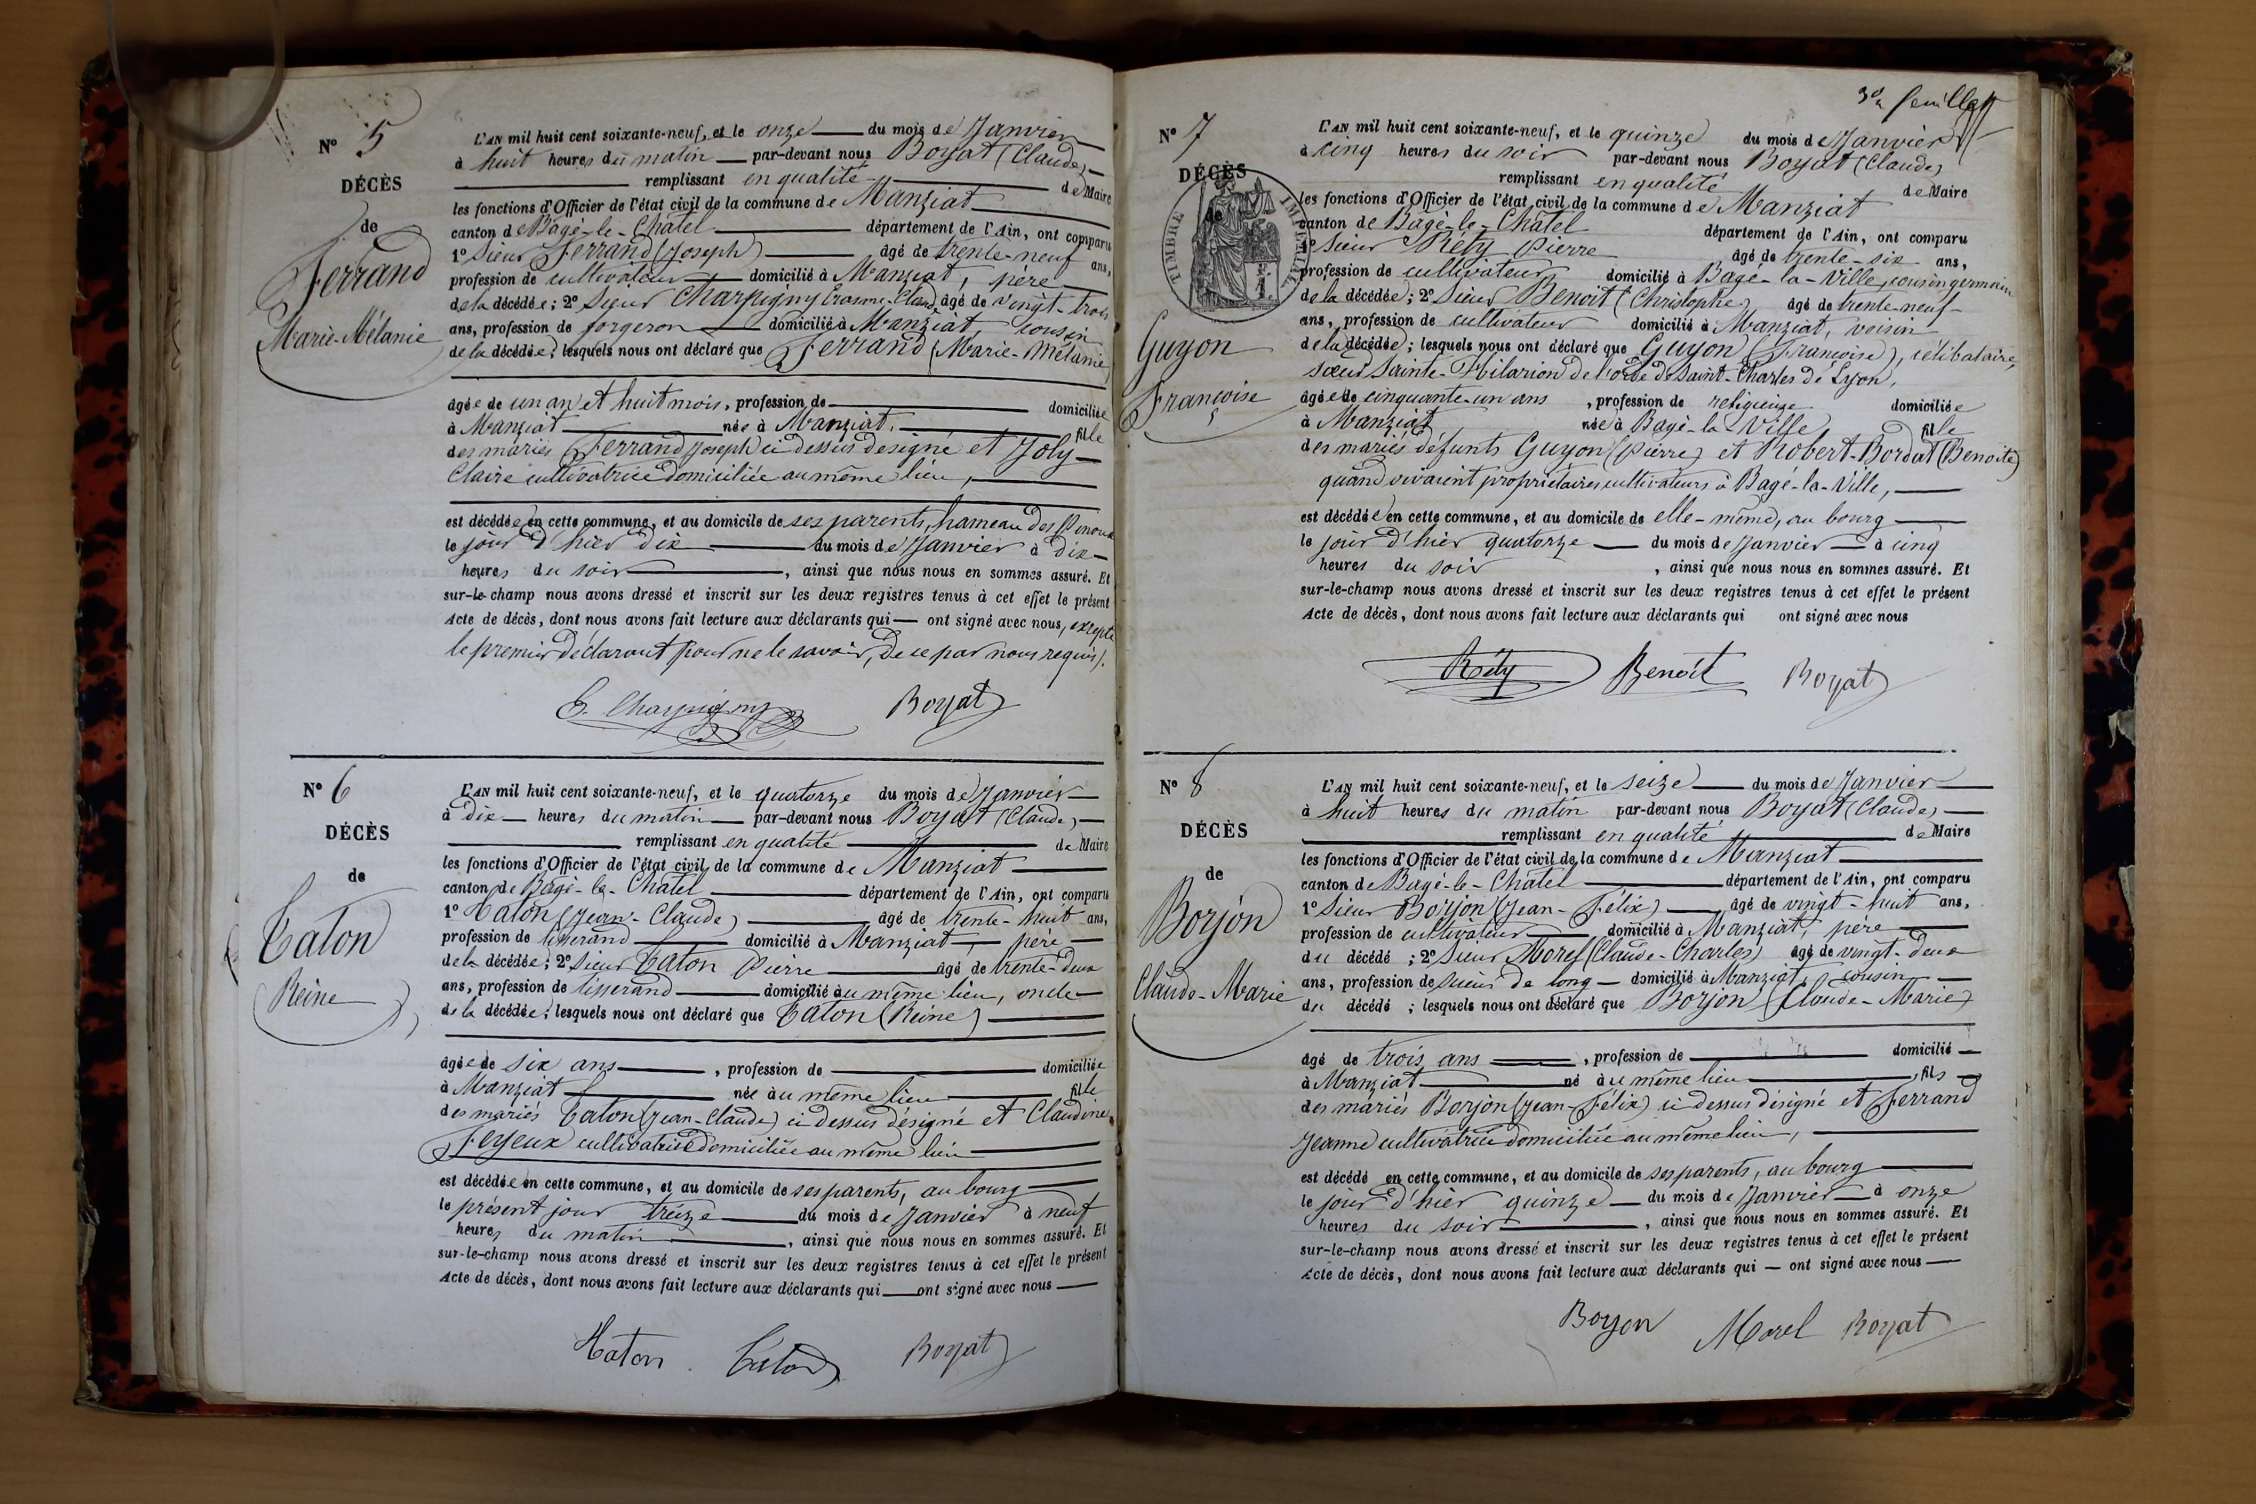 N° 5
DÉCÈS
de
Ferrand
Marie-Mélanie
L'AN mil huit cent soixante-neuf, et le onze du mois de Janvier
à huit heures du matin par-devant nous Boyat (Claude)
remplissant en qualité de Maire
les fonctions d'Officier de l'état civil de la commune de Manziat
canton de Bâgé-le-Châtel département de l'Ain, ont comparu
1° Sieur Ferrand (Joseph) âgé de trente-neuf ans,
profession de cultivateur domicilié à Manziat, père
de la décédée; 2° Sieur Charpigny Erasme-Claude âgé de vingt-trois
ans, profession de forgeron domicilié à Manziat, cousin
de la décédée; lesquels nous ont déclaré que Ferrand (Marie-Mélanie)
âgée de un an et huit mois, profession de domiciliée
à Manziat née à Manziat, fille
des mariés Ferrand Joseph ci dessus désigné et Joly
Claire cultivatrice domiciliée au même lieu,
est décédée en cette commune, et au domicile de ses parents, hameau des Pinoux
le jour d'hier dix du mois de Janvier à dix
heures du soir, ainsi que nous nous en sommes assuré. Et
sur-le-champ nous avons dressé et inscrit sur les deux registres tenus à cet effet le présent
Acte de décès, dont nous avons fait lecture aux déclarants qui ont signé avec nous, excepté
le premier déclarant pour ne le savoir, de ce par nous requis.
E. Charpigny Boyat
N° 6
DÉCÈS
de
Caton
Reine
L'AN mil huit cent soixante-neuf, et le quatorze du mois de Janvier
à dix heures du matin par-devant nous Boyat (Claude)
remplissant en qualité de Maire
les fonctions d'Officier de l'état civil de la commune de Manziat
canton de Bâgé-le-Châtel département de l'Ain, ont comparu
1° Caton (Jean-Claude) âgé de trente-huit ans,
profession de tisserand domicilié à Manziat, père
de la décédée; 2° Sieur Caton Pierre âgé de trente-deux
ans, profession de tisserand domicilié au même lieu, oncle
de la décédée; lesquels nous ont déclaré que Caton (Reine)
âgée de six ans, profession de domiciliée
à Manziat née au même lieu fille
des mariés Caton (Jean-Claude) ci dessus désigné et Claudine
Feyeux cultivatrice domiciliée au même lieu
est décédée en cette commune, et au domicile de ses parents, au bourg
le présent jour treize du mois de Janvier à neuf
heures du matin, ainsi que nous nous en sommes assuré. Et
sur-le-champ nous avons dressé et inscrit sur les deux registres tenus à cet effet le présent
Acte de décès, dont nous avons fait lecture aux déclarants qui ont signé avec nous
Caton Caton Boyat
3e feuillet
N° 7
DÉCÈS
de
TIMBRE IMPÉRIAL
Guyon
Françoise
L'AN mil huit cent soixante-neuf, et le quinze du mois de Janvier
à cinq heures du soir par-devant nous Boyat (Claude)
remplissant en qualité de Maire
les fonctions d'Officier de l'état civil de la commune de Manziat
canton de Bâgé-le-Châtel département de l'Ain, ont comparu
1° Sieur Réty Pierre âgé de trente-six ans,
profession de cultivateur domicilié à Bagé-la-Ville, cousin germain
de la décédée; 2° Sieur Benoît (Christophe) âgé de trente-neuf
ans, profession de cultivateur domicilié à Manziat, voisin
de la décédée; lesquels nous ont déclaré que Guyon (Françoise), célibataire,
sœur Sainte-Hilarion de l'orde de Saint-Charles de Lyon,
âgée de cinquante-un ans, profession de religieuse domiciliée
à Manziat née à Bagé-la-Ville fille
des mariés défunts Guyon (Pierre) et Robert-Bordat (Benoîte)
quand vivaient propriétaires cultivateurs à Bagé-la-Ville,
est décédée en cette commune, et au domicile de elle-même, au bourg
le jour d'hier quatorze du mois de Janvier à cinq
heures du soir, ainsi que nous nous en sommes assuré. Et
sur-le-champ nous avons dressé et inscrit sur les deux registres tenus à cet effet le présent
Acte de décès, dont nous avons fait lecture aux déclarants qui ont signé avec nous
Réty Benoît Boyat
N° 8
DÉCÈS
de
Borjon
Claude-Marie
L'AN mil huit cent soixante-neuf, et le seize du mois de Janvier
à huit heures du matin par-devant nous Boyat (Claude)
remplissant en qualité de Maire
les fonctions d'Officier de l'état civil de la commune de Manziat
canton de Bagé-le-Châtel département de l'Ain, ont comparu
1° Sieur Borjon (Jean-Félix) âgé de vingt-huit ans,
profession de cultivateur domicilié à Manziat, père
du décédé; 2° Sieur Morel (Claude-Charles) âgé de vingt-deux
ans, profession de scieur de long domicilié à Manziat, cousin
du décédé; lesquels nous ont déclaré que Borjon (Claude-Marie)
âgé de trois ans, profession de domicilié
à Manziat né au même lieu, fils
des mariés Borjon (Jean-Félix) ci dessus désigné et Ferrand
Jeanne cultivatrice domiciliée au même lieu,
est décédé en cette commune, et au domicile de ses parents, au bourg
le jour d'hier quinze du mois de Janvier à onze
heures du soir, ainsi que nous nous en sommes assuré. Et
sur-le-champ nous avons dressé et inscrit sur les deux registres tenus à cet effet le présent
Acte de décès, dont nous avons fait lecture aux déclarants qui ont signé avec nous
Borjon Morel Boyat